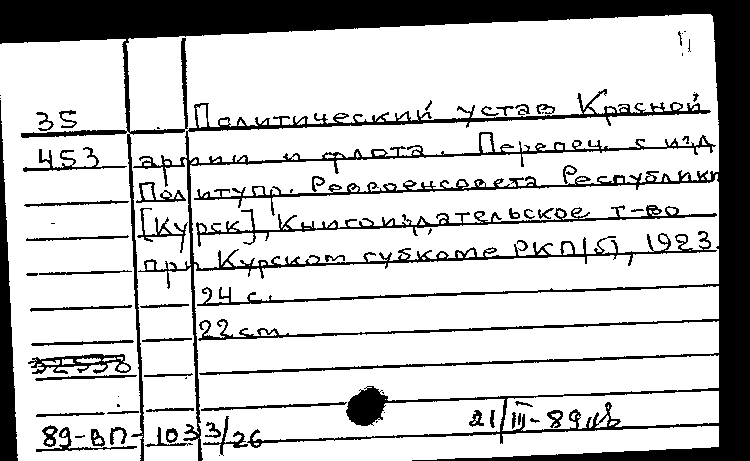 35 Политический устав Красной
453 армии и флота. Перепеч. с изд
Политупр. Реввоенсовета Республики
[Курск], Книгоиздательское т-во
при Курском губкоме РКП(б), 1923.
24 с.
22 см.
32538
89-ВП-1033/26 21/III-89